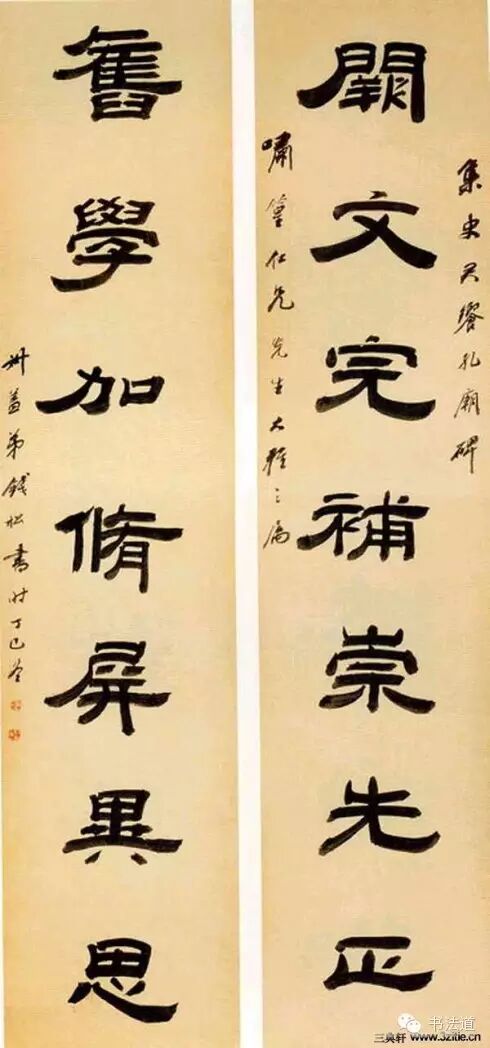 集史君饗孔廟碑
闕文完補崇先正
嘯篁仁兄先生大雅之屬
舊學加脩屏異思
叔蓋弟錢松書時丁巳冬
书法道
三典轩 www.3zitie.cn